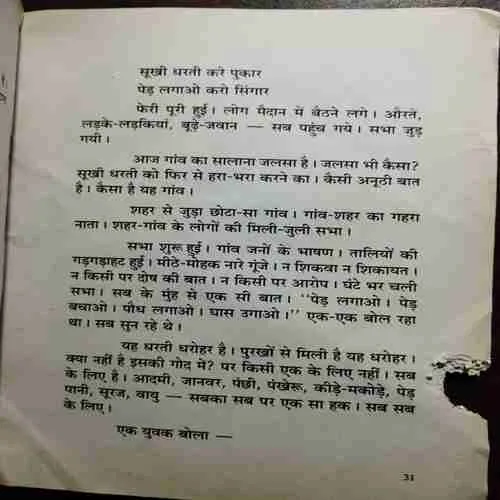 सूखी धरती करे पुकार
पेड़ लगाओ करो सिंगार
फेरी पूरी हुई । लोग मैदान में बैठने लगे । औरतें,
लड़के-लड़कियां, बूढ़े-जवान — सब पहुंच गये । सभा जुड़
गयी ।
आज गांव का सालाना जलसा है । जलसा भी कैसा?
सूखी धरती को फिर से हरा-भरा करने का । कैसी अनूठी बात
है । कैसा है यह गांव ।
शहर से जुड़ा छोटा-सा गांव । गांव-शहर का गहरा
नाता । शहर-गांव के लोगों की मिली-जुली सभा ।
सभा शुरू हुई । गांव जनों के भाषण । तालियों की
गड़गड़ाहट हुई । मीठे-मोहक नारे गूंजे । न शिकवा न शिकायत ।
न किसी पर दोष की बात । न किसी पर आरोप । घंटे भर चली
सभा । सब के मुंह से एक सी बात । "पेड़ लगाओ । पेड़
बचाओ । पौध लगाओ । घास उगाओ ।" एक-एक बोल रहा
था । सब सुन रहे थे ।
यह धरती धरोहर है । पुरखों से मिली है यह धरोहर ।
क्या नहीं है इसकी गोद में? पर किसी एक के लिए नहीं । सब
के लिए है । आदमी, जानवर, पंछी, पंखेरू, कीड़े-मकोड़े, पेड़
पानी, सूरज, वायु — सबका सब पर एक सा हक । सब सब
के लिए ।
एक युवक बोला —
31